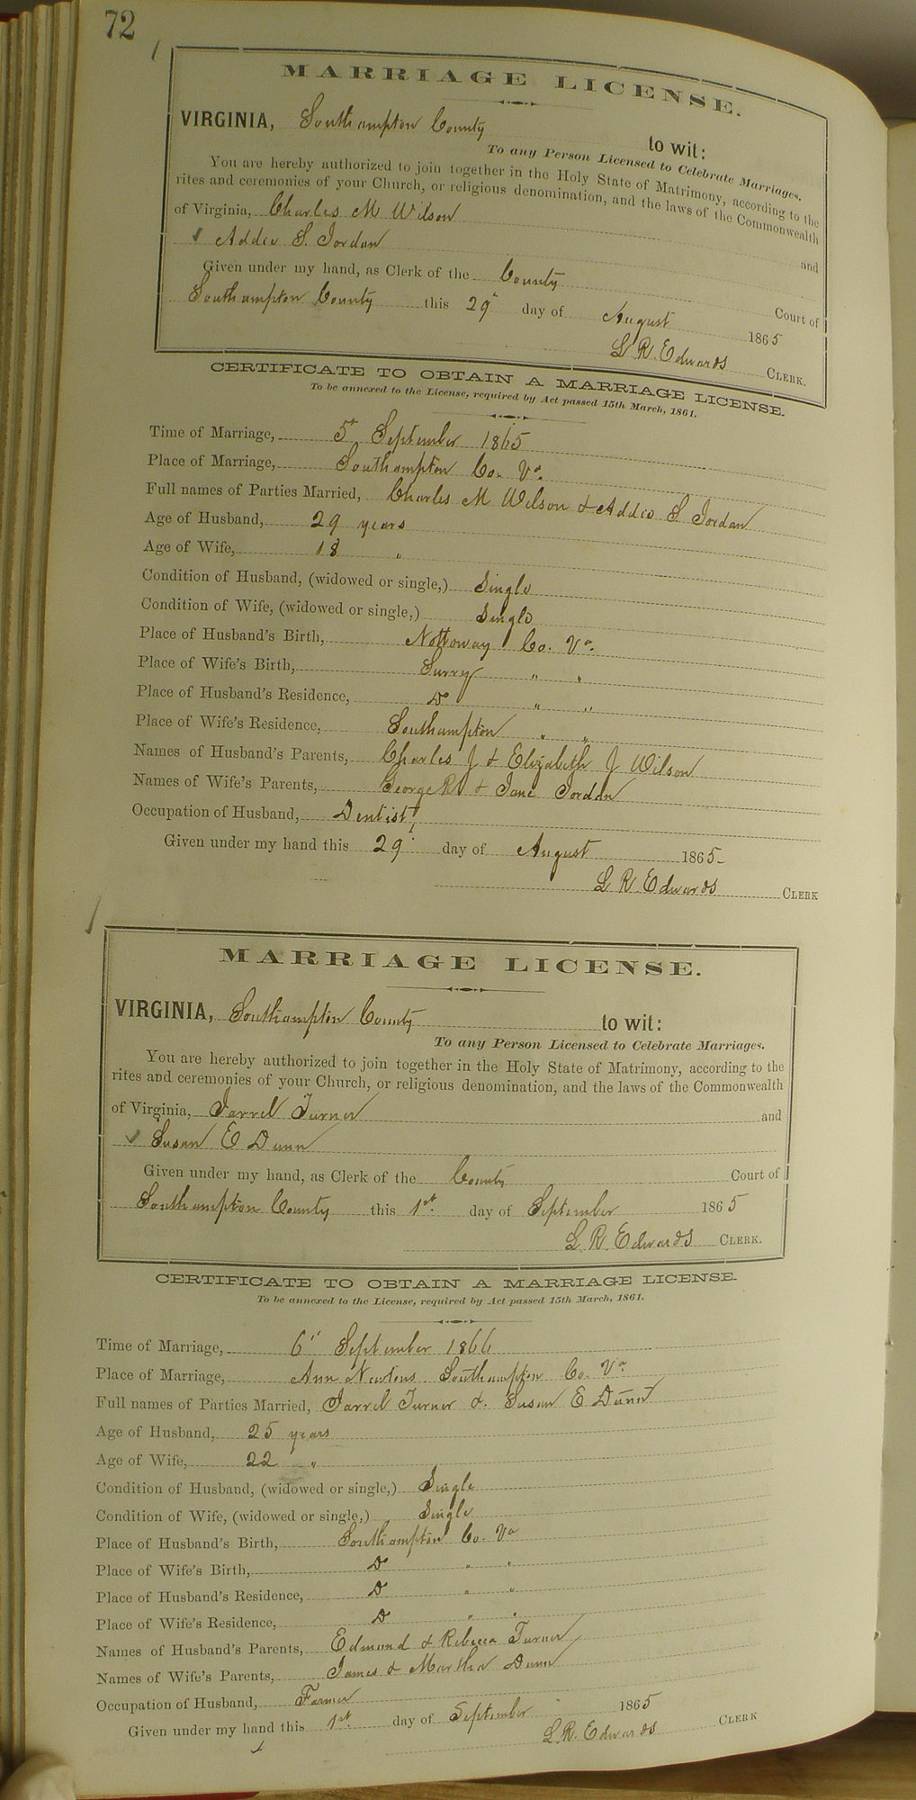 72
MARRIAGE LICENSE.
VIRGINIA, Southampton County to wit:
To any Person Licensed to Celebrate Marriages.
You are hereby authorized to join together in the Holy State of Matrimony, according to the
rites and ceremonies of your Church, or religious denomination, and the laws of the Commonwealth
of Virginia, Charles M Wilson and
Addie S. Jordan
Given under my hand, as Clerk of the County Court of
Southampton County this 29" day of August 1865
L R. Edwards CLERK.
CERTIFICATE TO OBTAIN A MARRIAGE LICENSE.
To be annexed to the License, required by Act passed 15th March, 1861.
Time of Marriage, 5" September 1865
Place of Marriage, Southampton Co. Va.
Full names of Parties Married, Charles M Wilson & Addie S. Jordan
Age of Husband, 29 years
Age of Wife, 18 "
Condition of Husband, (widowed or single,) Single
Condition of Wife, (widowed or single,) Single
Place of Husband's Birth, Nottoway Co. Va.
Place of Wife's Birth, Surry " "
Place of Husband's Residence, Do " "
Place of Wife's Residence, Southampton " "
Names of Husband's Parents, Charles J & Elizabeth J Wilson
Names of Wife's Parents, George R & Jane Jordan
Occupation of Husband, Dentist
Given under my hand this 29" day of August 1865
L R Edwards CLERK
MARRIAGE LICENSE.
VIRGINIA, Southampton County to wit:
To any Person Licensed to Celebrate Marriages.
You are hereby authorized to join together in the Holy State of Matrimony, according to the
rites and ceremonies of your Church, or religious denomination, and the laws of the Commonwealth
of Virginia, Jarrel Turner and
Susan E Dunn
Given under my hand, as Clerk of the County Court of
Southampton County this 1st. day of September 1865
L. R. Edwards CLERK.
CERTIFICATE TO OBTAIN A MARRIAGE LICENSE.
To be annexed to the License, required by Act passed 15th March, 1861.
Time of Marriage, 6" September 1866
Place of Marriage, Ann Newtons Southampton Co. Va.
Full names of Parties Married, Jarrel Turner & Susan E Dunn
Age of Husband, 25 years
Age of Wife, 22 "
Condition of Husband, (widowed or single,) Single
Condition of Wife, (widowed or single,) Single
Place of Husband's Birth, Southampton Co. Va
Place of Wife's Birth, Do " "
Place of Husband's Residence, Do " "
Place of Wife's Residence, Do " "
Names of Husband's Parents, Edmond & Rebecca Turner
Names of Wife's Parents, James & Martha Dunn
Occupation of Husband, Farmer
Given under my hand this 1st. day of September 1865
L.R. Edwards CLERK